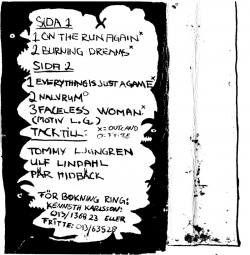 SIDA 1 X
1 ON THE RUN AGAIN x
2 BURNING DREAMS x
SIDA 2
1 EVERYTHING IS JUST A GAME x
2 NALVRUM o
3 FACELESS WOMAN x
(MOTIV L.G.)
TACK TILL: X=OUTLAND
O=FRITTE
TOMMY LJUNGREN
ULF LINDAHL
PÄR MIDBÄCK
FÖR BOKNING RING:
KENNETH KARLSSON:
013/136823 ELLER
FRITTE: 013/63528